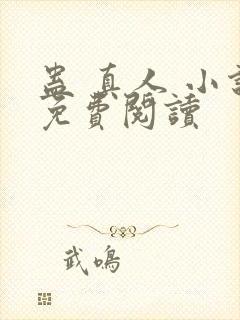 蛊真人 小說
免費閱讀
武鳴